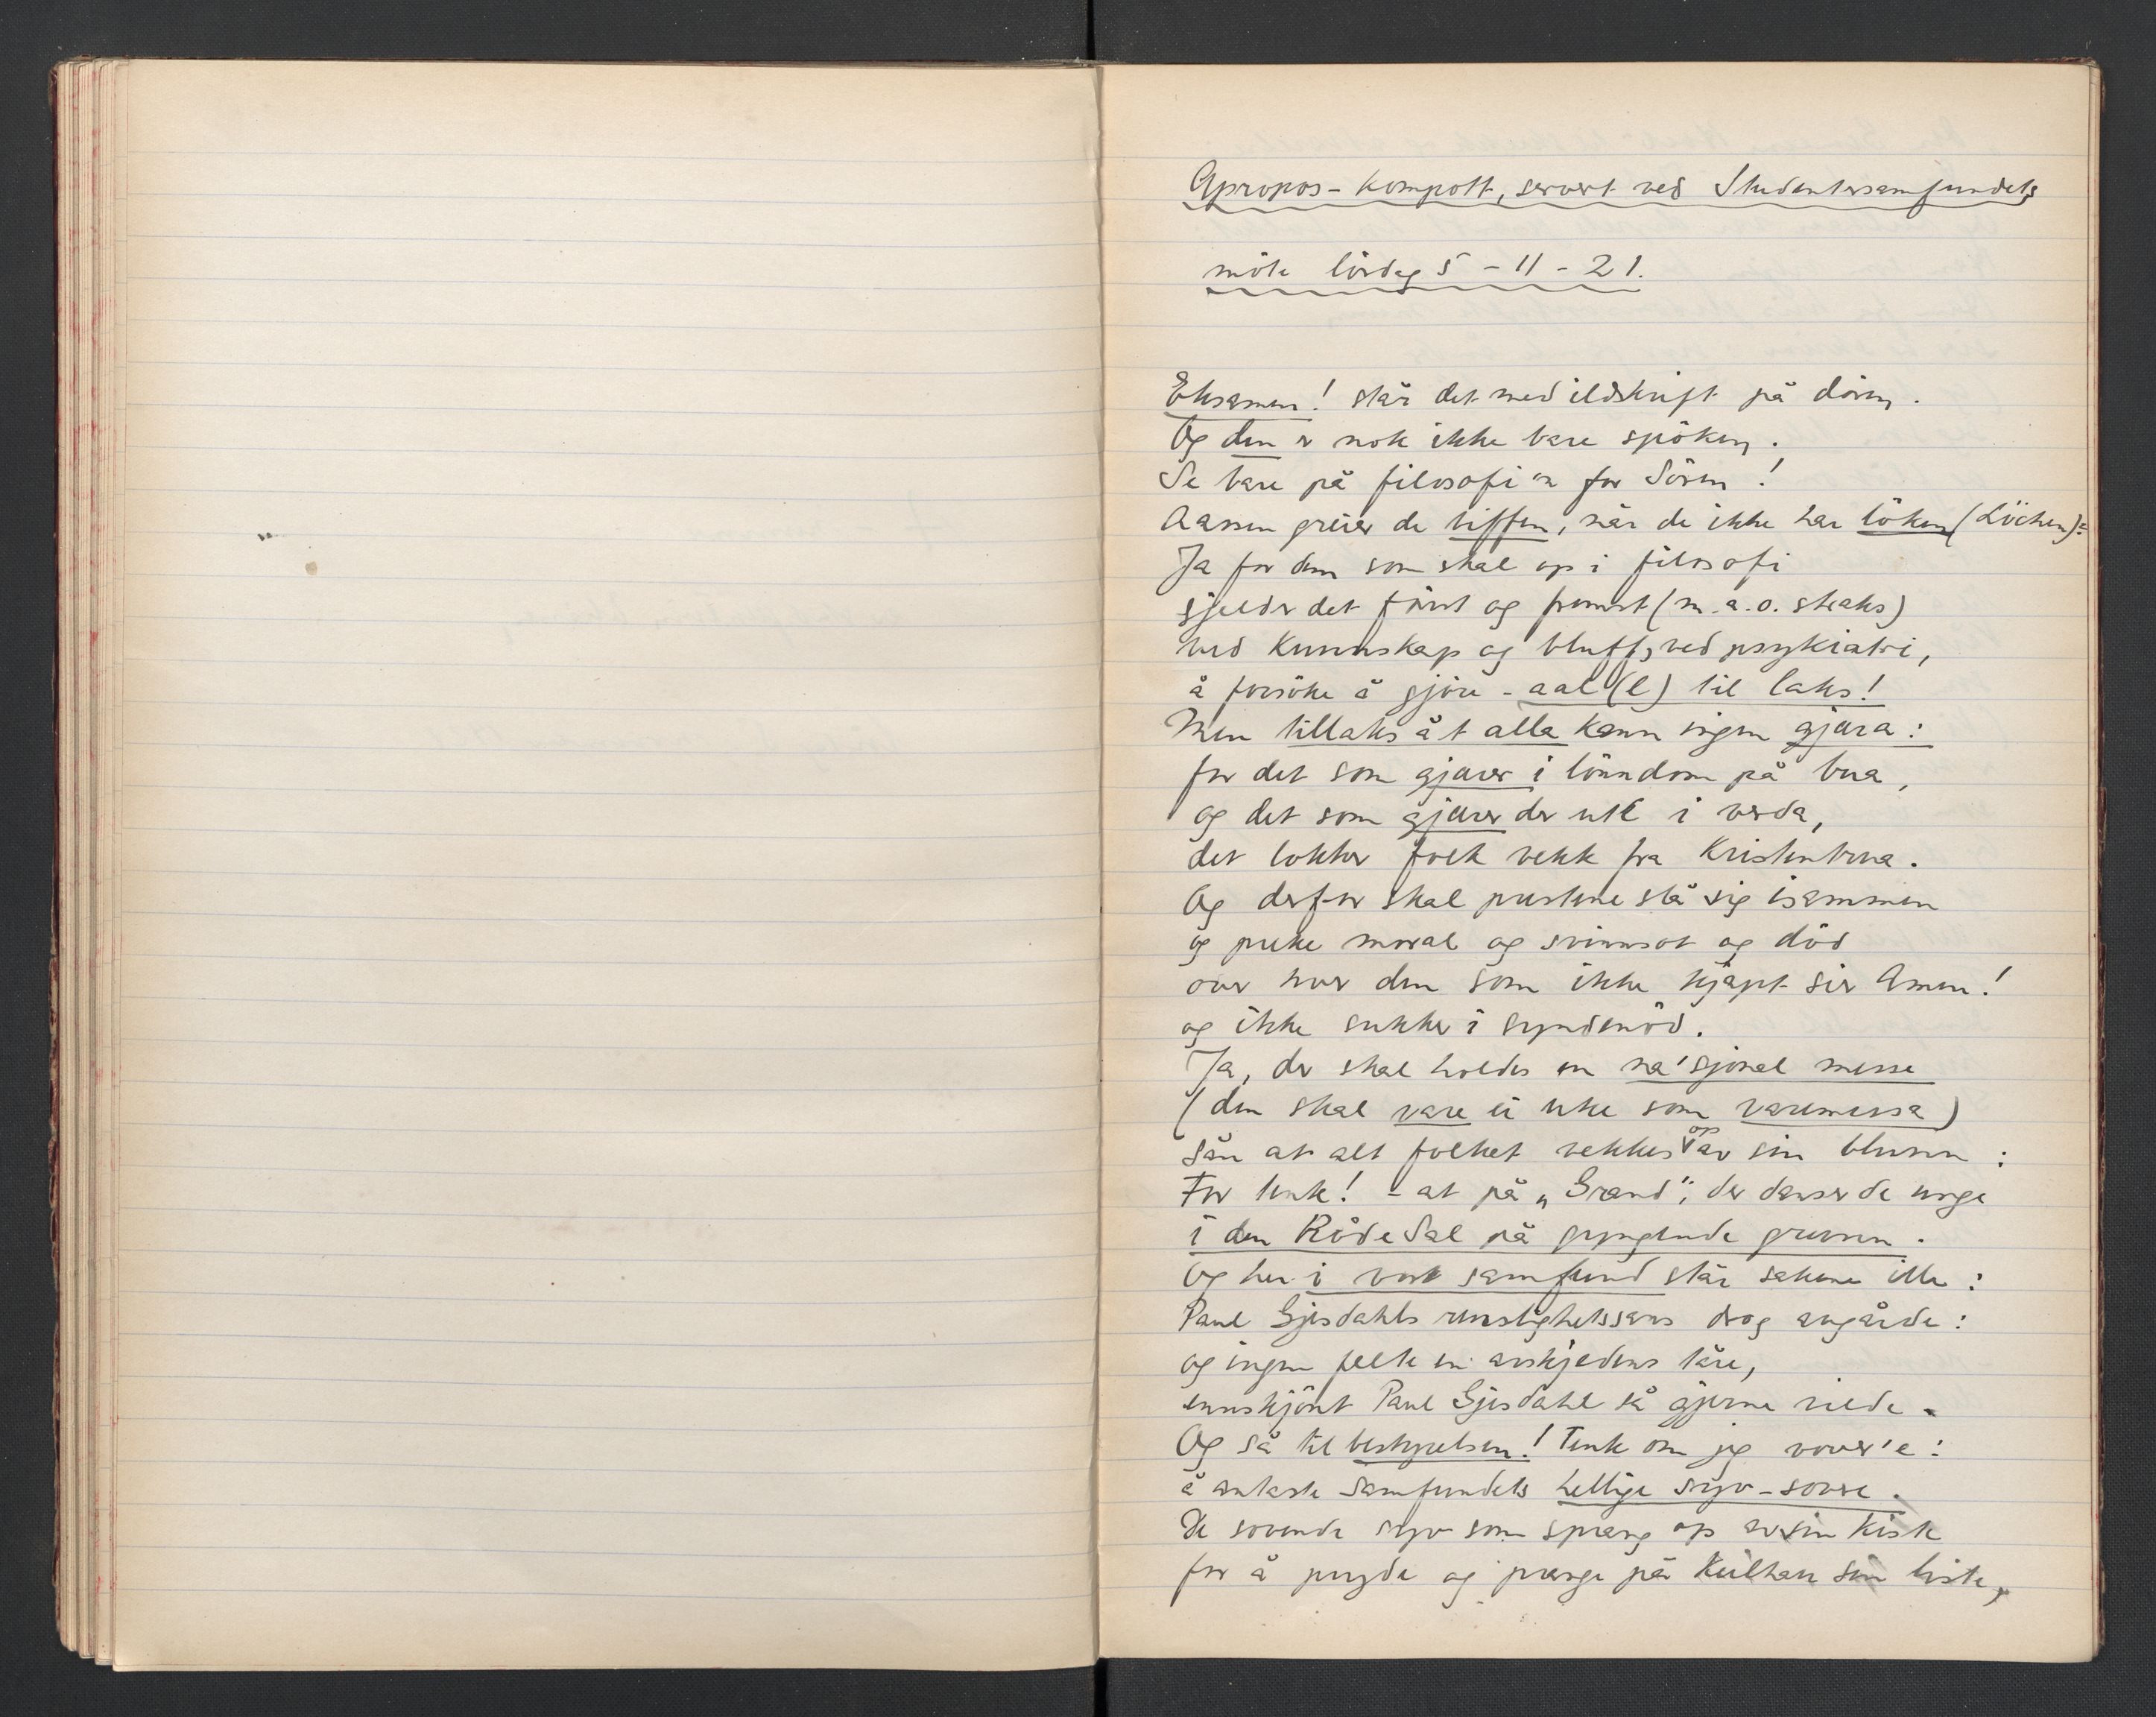 Apropos-kompott, servert ved Studentersamfundets
møte lördag 5 - 11 - 21.
Eksamen! står det med ildskrift på dören.
Og den er nok ikke bare spöken.
Se bare på filosofi'n for Sören!
Aassen greier de biffen, når de ikke har löken (Löchen):
Ja for dem som skal op i filosofi
gjelder det först og fremst (m.a.o. straks)
ved kunnskap og bluff, ved psykiatri,
å forsöke å gjöre - aal(l) til laks!
Men tillaks åt alla kann ingen gjæra:
for det som gjærer i lönndom på bua,
og det som gjærer der ute i verda,
det lokker folk vekk fra Kristentrua.
Og derfor skal prestene slå sig isammen
og preke moral og svinnsot og död
over hver den som ikke kjapt sier Amen!
og ikke sukker i syndenöd.
Ja, der skal holdes en na'sjonal messe
(den skal vare ei uke som varemessa)
sån at alt folket vekkes op av sin blunn:
For tenk! - at på „Grand", der danser de unge
i den Röde Sal på gyngende grunn.
Og her i vort samfund står sakene ille:
Paul Gjesdahls anstighetssans drog avgårde:
og ingen felte en avskjedens tåre,
ennskjönt Paul Gjesdahl så gjerne vilde.
Og så til bestyrelsen! Tenk om jeg vover'e:
å antaste Samfundets hellige syv-sovere.
De sovende syv som sprang op av sin kiste
for å pryde og prange på Keilhau sin liste,